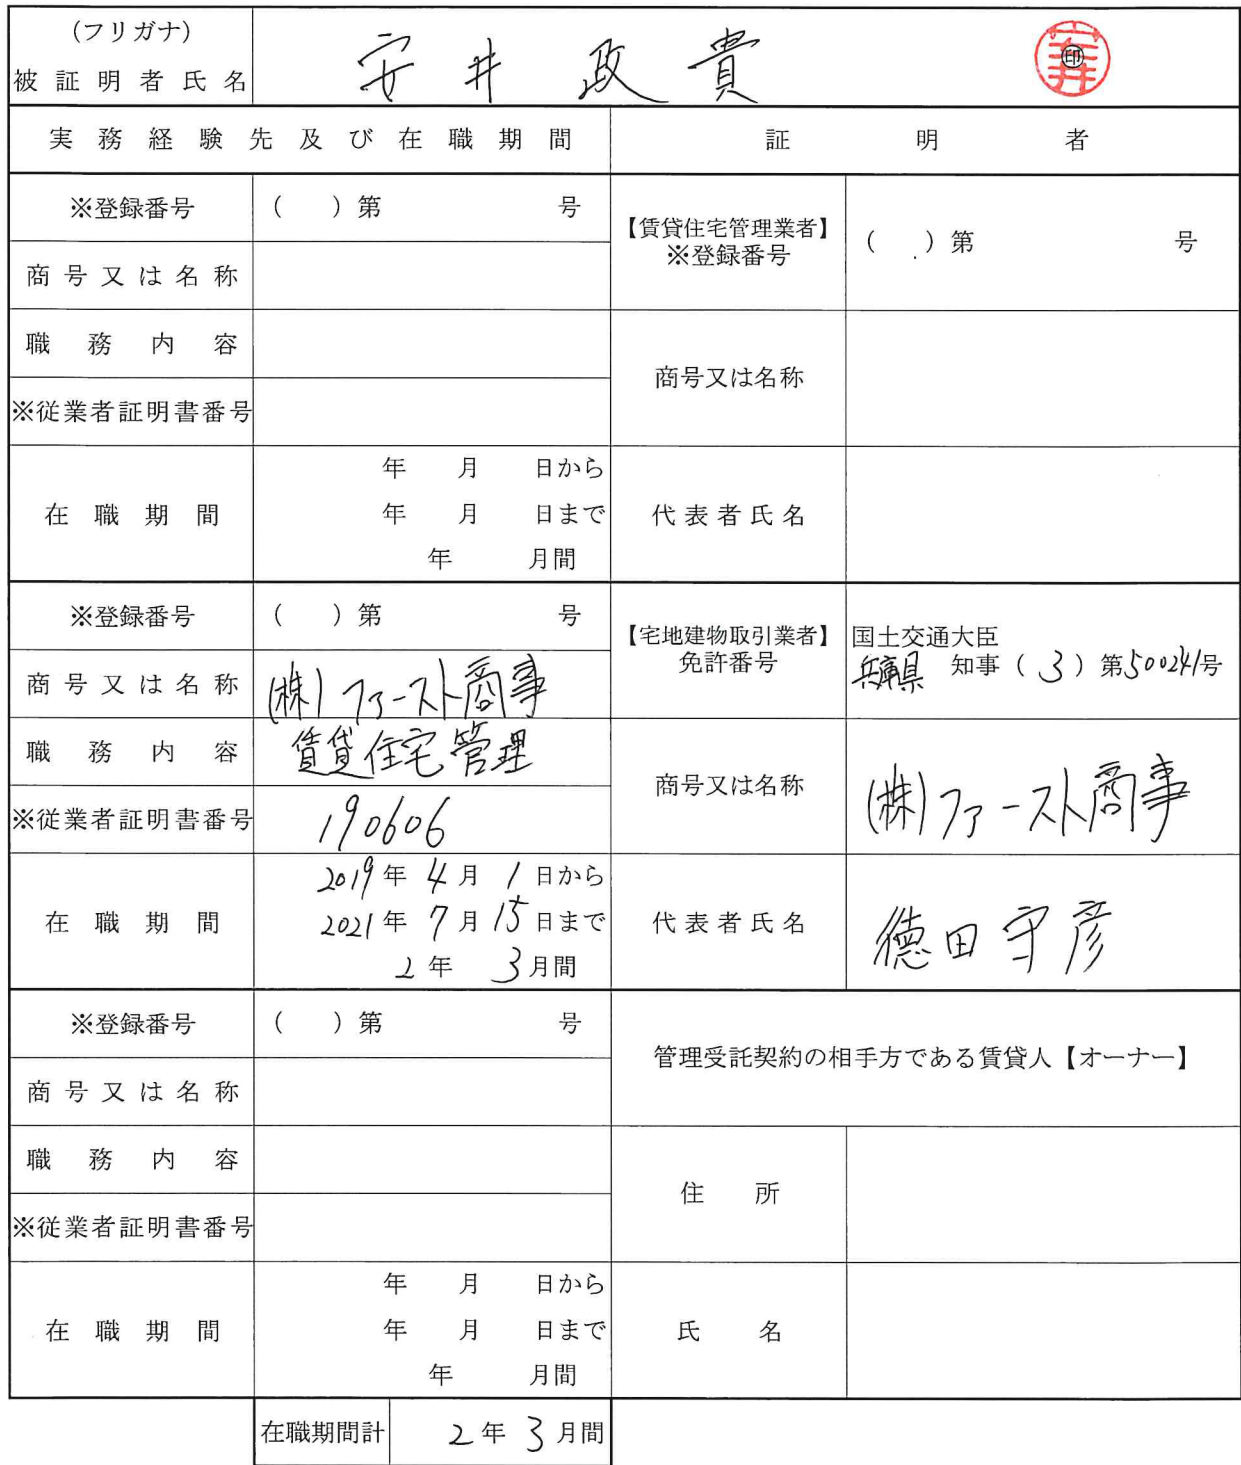 (フリガナ)
被証明者氏名 安井 政貴 印
実務経験先及び在職期間 証明者
※登録番号 ( )第 号
【賃貸住宅管理業者】
※登録番号 ( )第 号
商号又は名称
職務内容
商号又は名称
※従業者証明書番号
在職期間
年 月 日から
年 月 日まで
年 月間
代表者氏名
※登録番号 ( )第 号
【宅地建物取引業者】
免許番号
国土交通大臣
兵庫県 知事(3)第500241号
商号又は名称 (株)ファースト商事
職務内容 賃貸住宅管理
商号又は名称 (株)ファースト商事
※従業者証明書番号 190606
在職期間
2019年4月1日から
2021年7月15日まで
2年 3月間
代表者氏名 徳田守彦
※登録番号 ( )第 号
管理受託契約の相手方である賃貸人【オーナー】
商号又は名称
職務内容
住所
※従業者証明書番号
在職期間
年 月 日から
年 月 日まで
年 月間
氏名
在職期間計 2年3月間